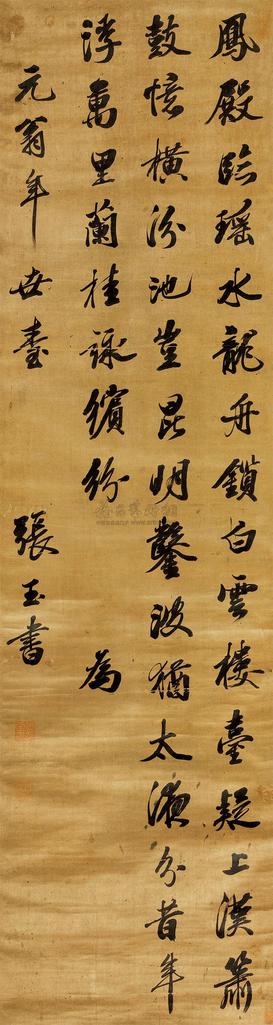 鳳殿臨瑤水龍舟鎖白雲樓臺疑上漢簫
鼓憶橫汾池豈昆明鑿波猶太液分昔年
浮萬里蘭桂詠繽紛 為
元翁年世臺 張玉書